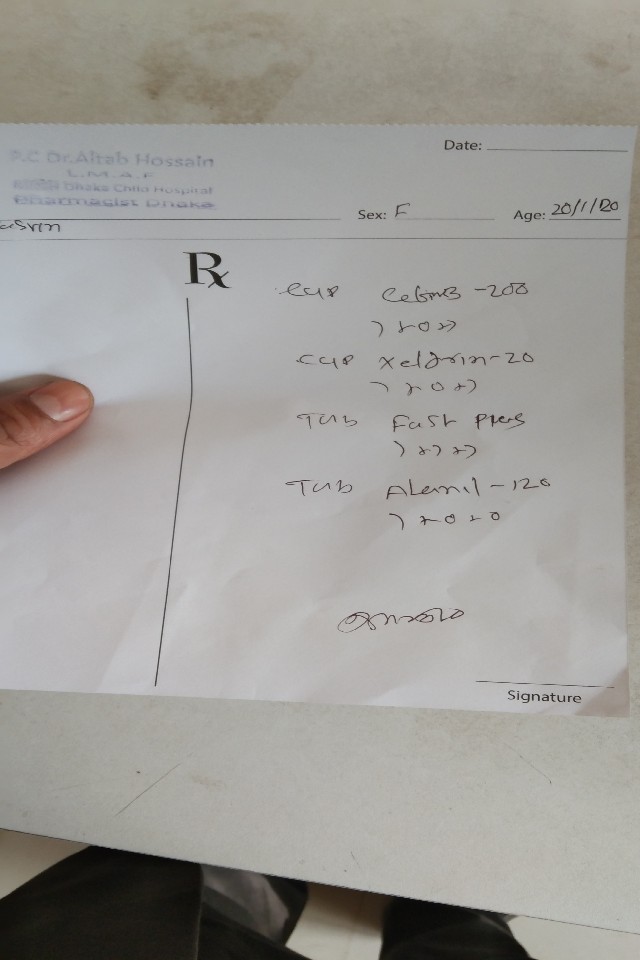 P.C Dr.Altab Hossain
L.M.A.F
Dhaka Child Hospital
Pharmacist Dhaka
Date:
Sex: F Age: 20/1/20
Rx
Cap -200
১+০+১
Cap Xeldrin-20
১+০+১
Tab Fast Plus
১+১+১
Tab -120
১+০+০
Signature